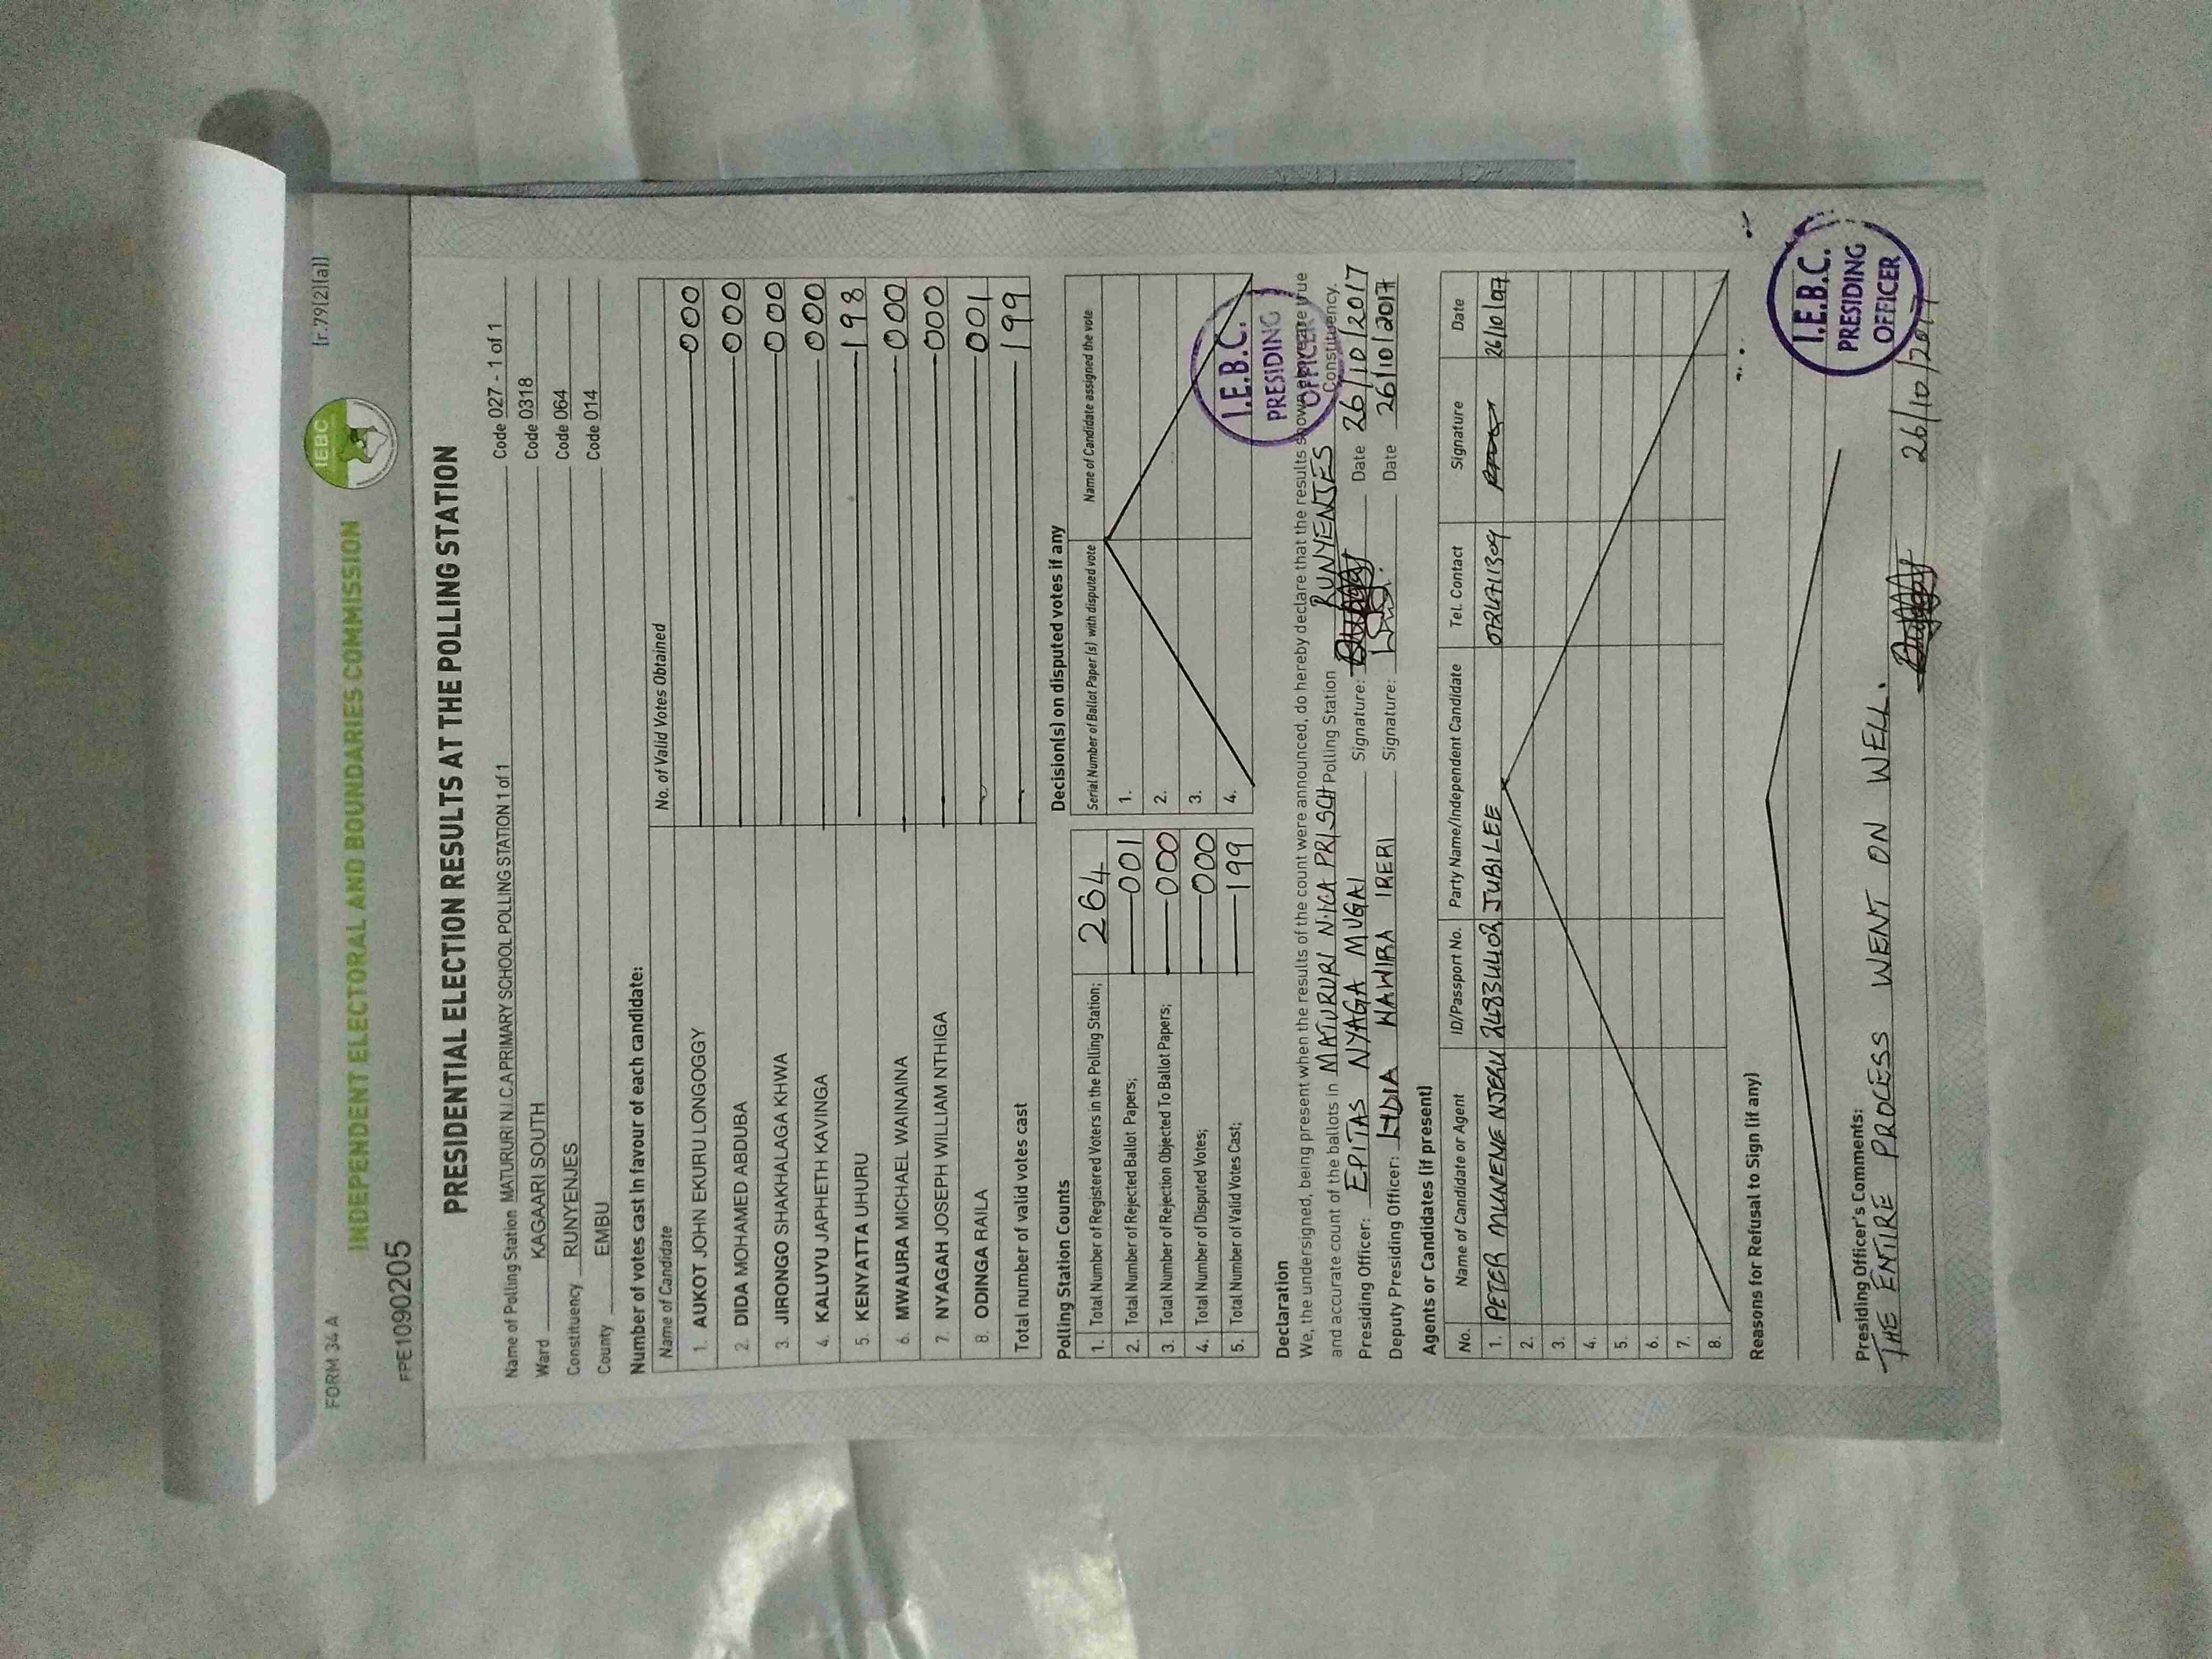 FORM 34 A
[r.79(2)(a)]
INDEPENDENT ELECTORAL AND BOUNDARIES COMMISSION
IEBC
FPE1090205
PRESIDENTIAL ELECTION RESULTS AT THE POLLING STATION
Name of Polling Station MATURURI N.I.C.A PRIMARY SCHOOL POLLING STATION 1 of 1 Code 027 - 1 of 1
Ward KAGAARI SOUTH Code 0318
Constituency RUNYENJES Code 064
County EMBU Code 014
Number of votes cast in favour of each candidate:
Name of Candidate No. of Valid Votes Obtained
1. AUKOT JOHN EKURU LONGOGGY 000
2. DIDA MOHAMED ABDUBA 000
3. JIRONGO SHAKHALAGA KHWA 000
4. KALUYU JAPHETH KAVINGA 000
5. KENYATTA UHURU 198
6. MWAURA MICHAEL WAINAINA 000
7. NYAGAH JOSEPH WILLIAM NTHIGA 000
8. ODINGA RAILA 001
Total number of valid votes cast 199
Polling Station Counts
1. Total Number of Registered Voters in the Polling Station; 264
2. Total Number of Rejected Ballot Papers; 001
3. Total Number of Rejection Objected To Ballot Papers; 000
4. Total Number of Disputed Votes; 000
5. Total Number of Valid Votes Cast; 199
Decision(s) on disputed votes if any
Serial Number of Ballot Paper (s) with disputed vote Name of Candidate assigned the vote
1.
2.
3.
4.
I.E.B.C.
PRESIDING
OFFICER
Declaration
We, the undersigned, being present when the results of the count were announced, do hereby declare that the results shown above are true
and accurate count of the ballots in MATURURI N.I.CA PRI SCH Polling Station RUNYENJES Constituency.
Presiding Officer: EPITAS NYAGA MUGAI Signature: Date 26/10/2017
Deputy Presiding Officer: LYDIA WAWIRA IRERI Signature: Date 26/10/2017
Agents or Candidates (if present)
No. Name of Candidate or Agent ID/Passport No. Party Name/Independent Candidate Tel. Contact Signature Date
1. PETER MUNENE NJERU JUBILEE 26/10/07
2.
3.
4.
5.
6.
7.
8.
Reasons for Refusal to Sign (if any)
Presiding Officer's Comments:
THE ENTIRE PROCESS WENT ON WELL.
26/10/2017
I.E.B.C.
PRESIDING
OFFICER